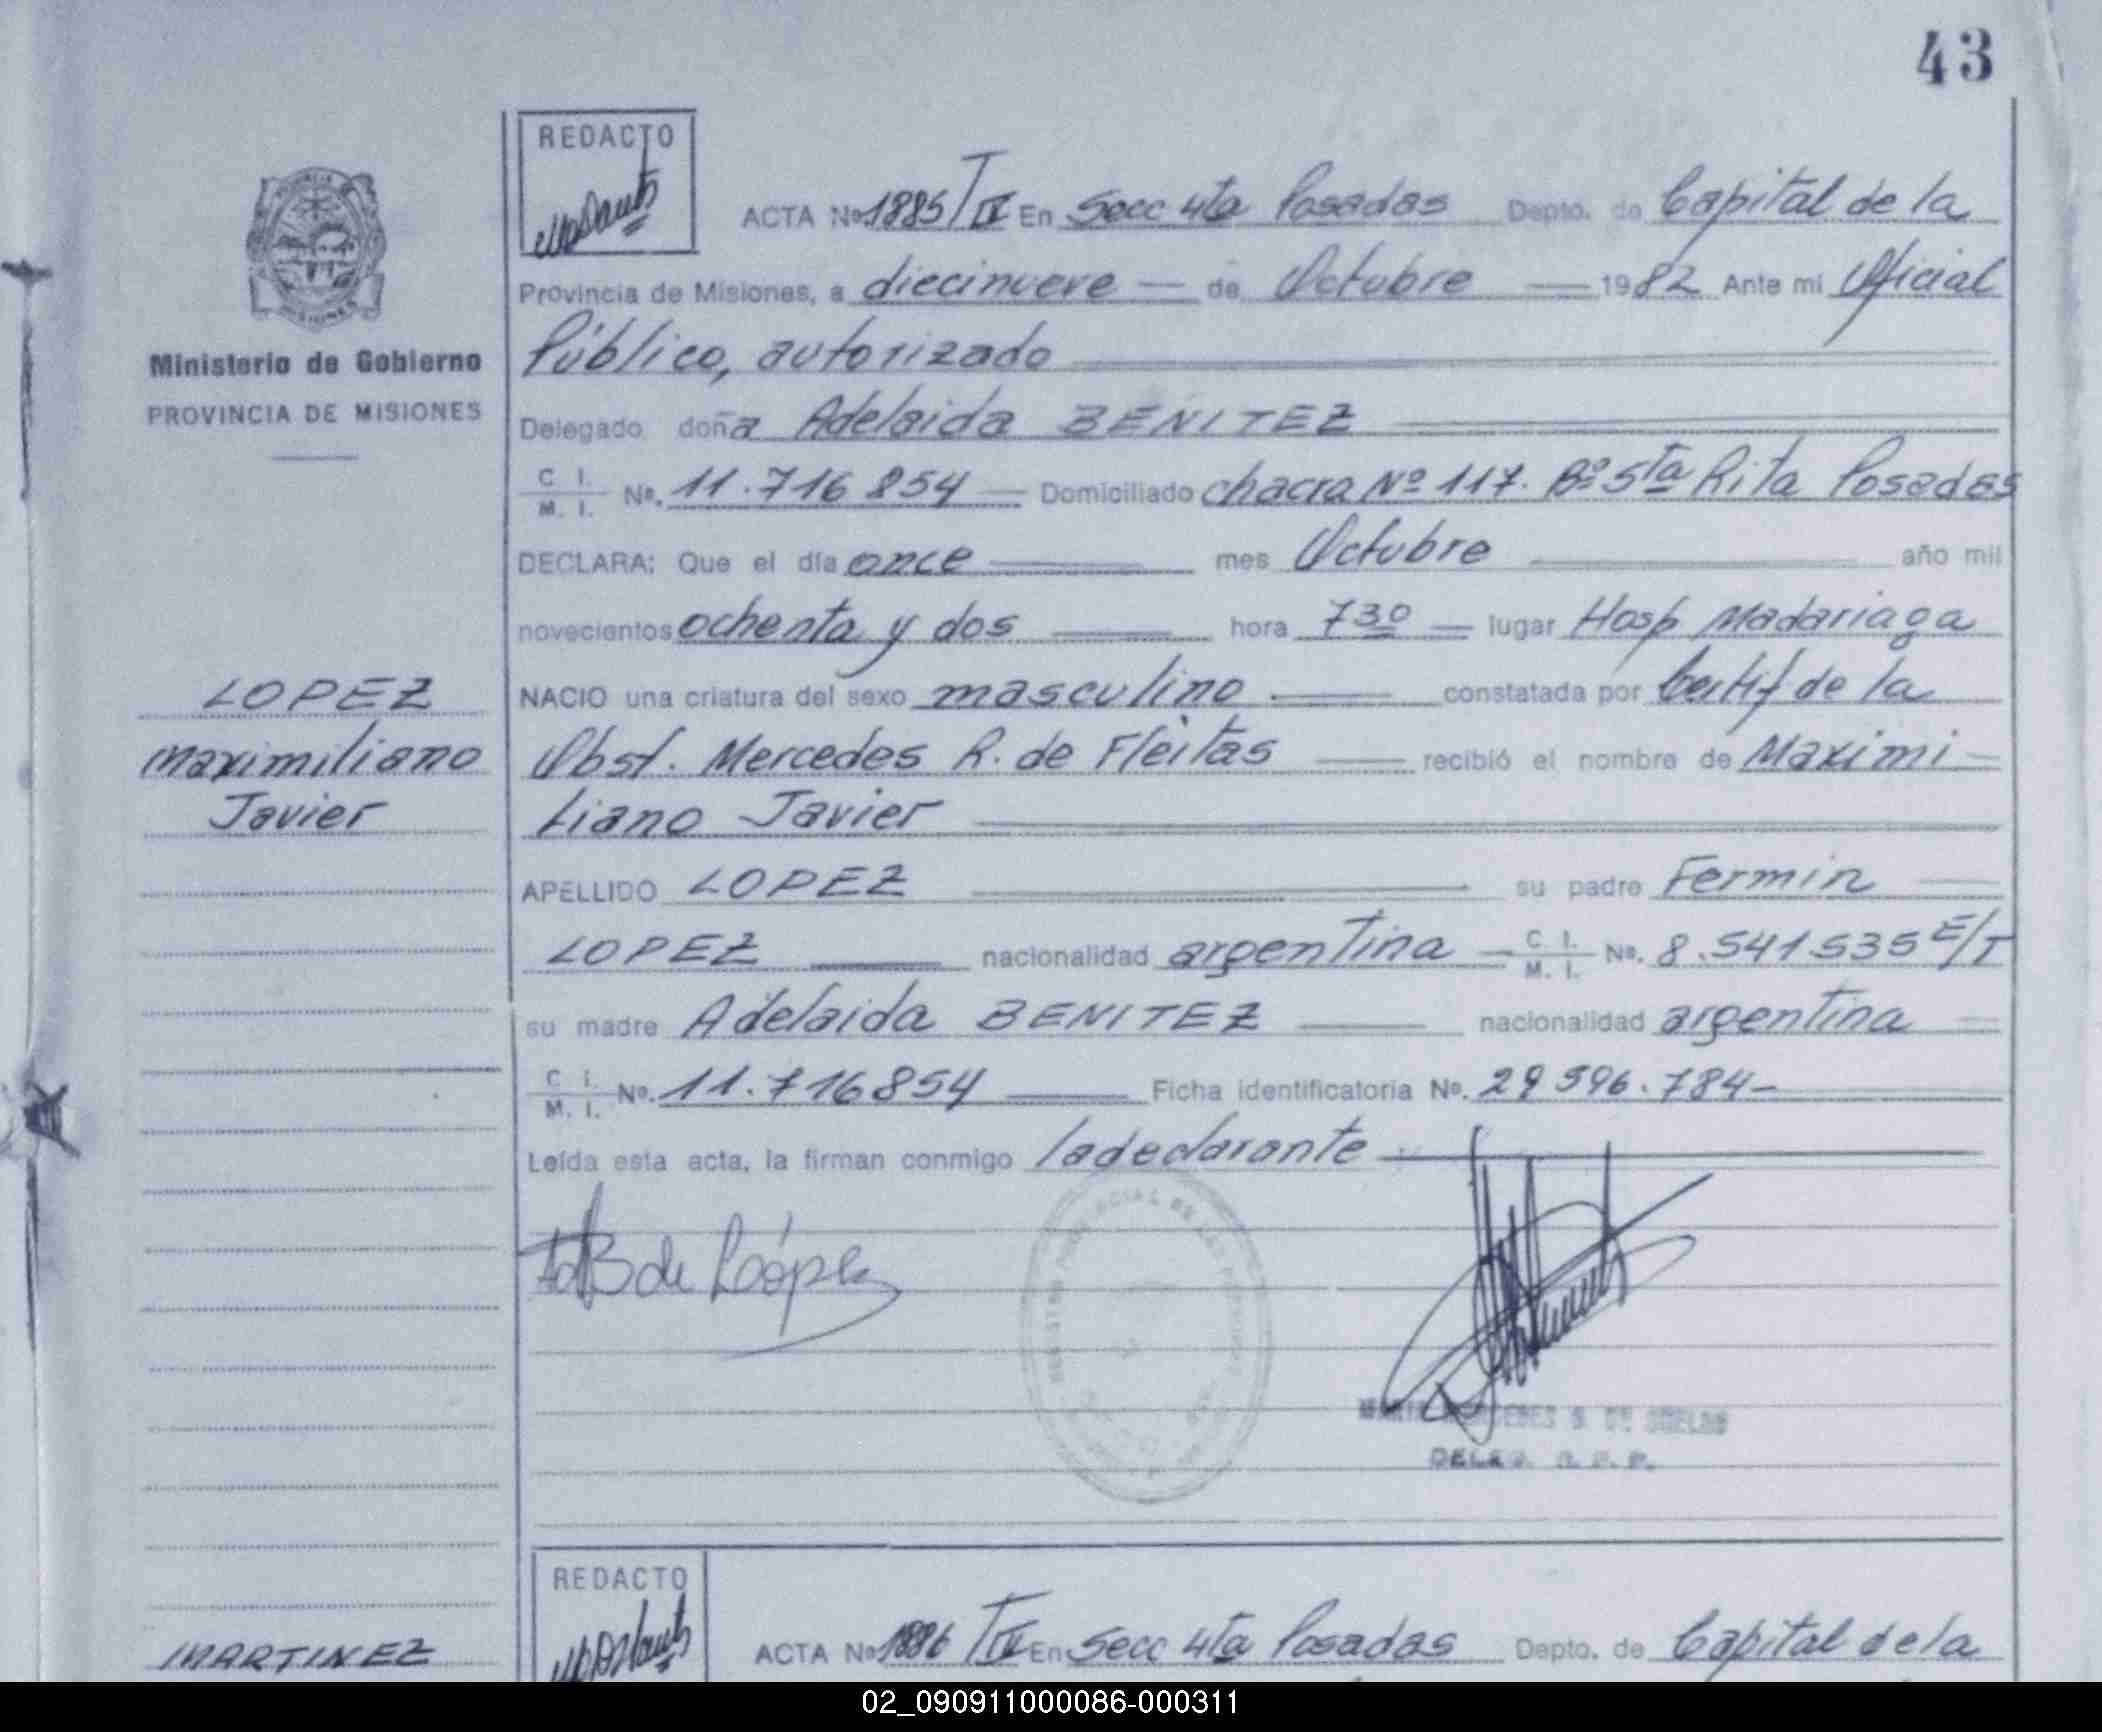 43
REDACTO
ACTA Nº 1885/T IV En Secc 4ta Posadas Depto. de Capital de la
Provincia de Misiones, a diecinueve — de Octubre — 1982 Ante mi Oficial
Público, autorizado
Delegado doña Adelaida BENITEZ
C. I. M. I. Nº. 11.716 854 — Domiciliado chacra Nº 117. Bº Sta Rita Posadas
DECLARA: Que el día once mes Octubre año mil
novecientos ochenta y dos hora 7 30 — lugar Hosp Madariaga
NACIO una criatura del sexo masculino constatada por Certif de la
Obst. Mercedes R. de Fleitas recibió el nombre de Maximi-
liano Javier
APELLIDO LOPEZ su padre Fermin
LOPEZ nacionalidad argentina — C. I. M. I. Nº. 8.541535 E/T
su madre Adelaida BENITEZ nacionalidad argentina
C. I. M. I. Nº. 11.716854 Ficha identificatoria Nº. 29 596.784-
Leída esta acta, la firman conmigo la declarante
AdB de López
MERCEDES DE
PROVINCIA
MISIONES
Ministerio de Gobierno
PROVINCIA DE MISIONES
LOPEZ
Maximiliano
Javier
REDACTO
ACTA Nº 1886 T IV En Secc 4ta Posadas Depto. de Capital de la
MARTINEZ
02_090911000086-000311